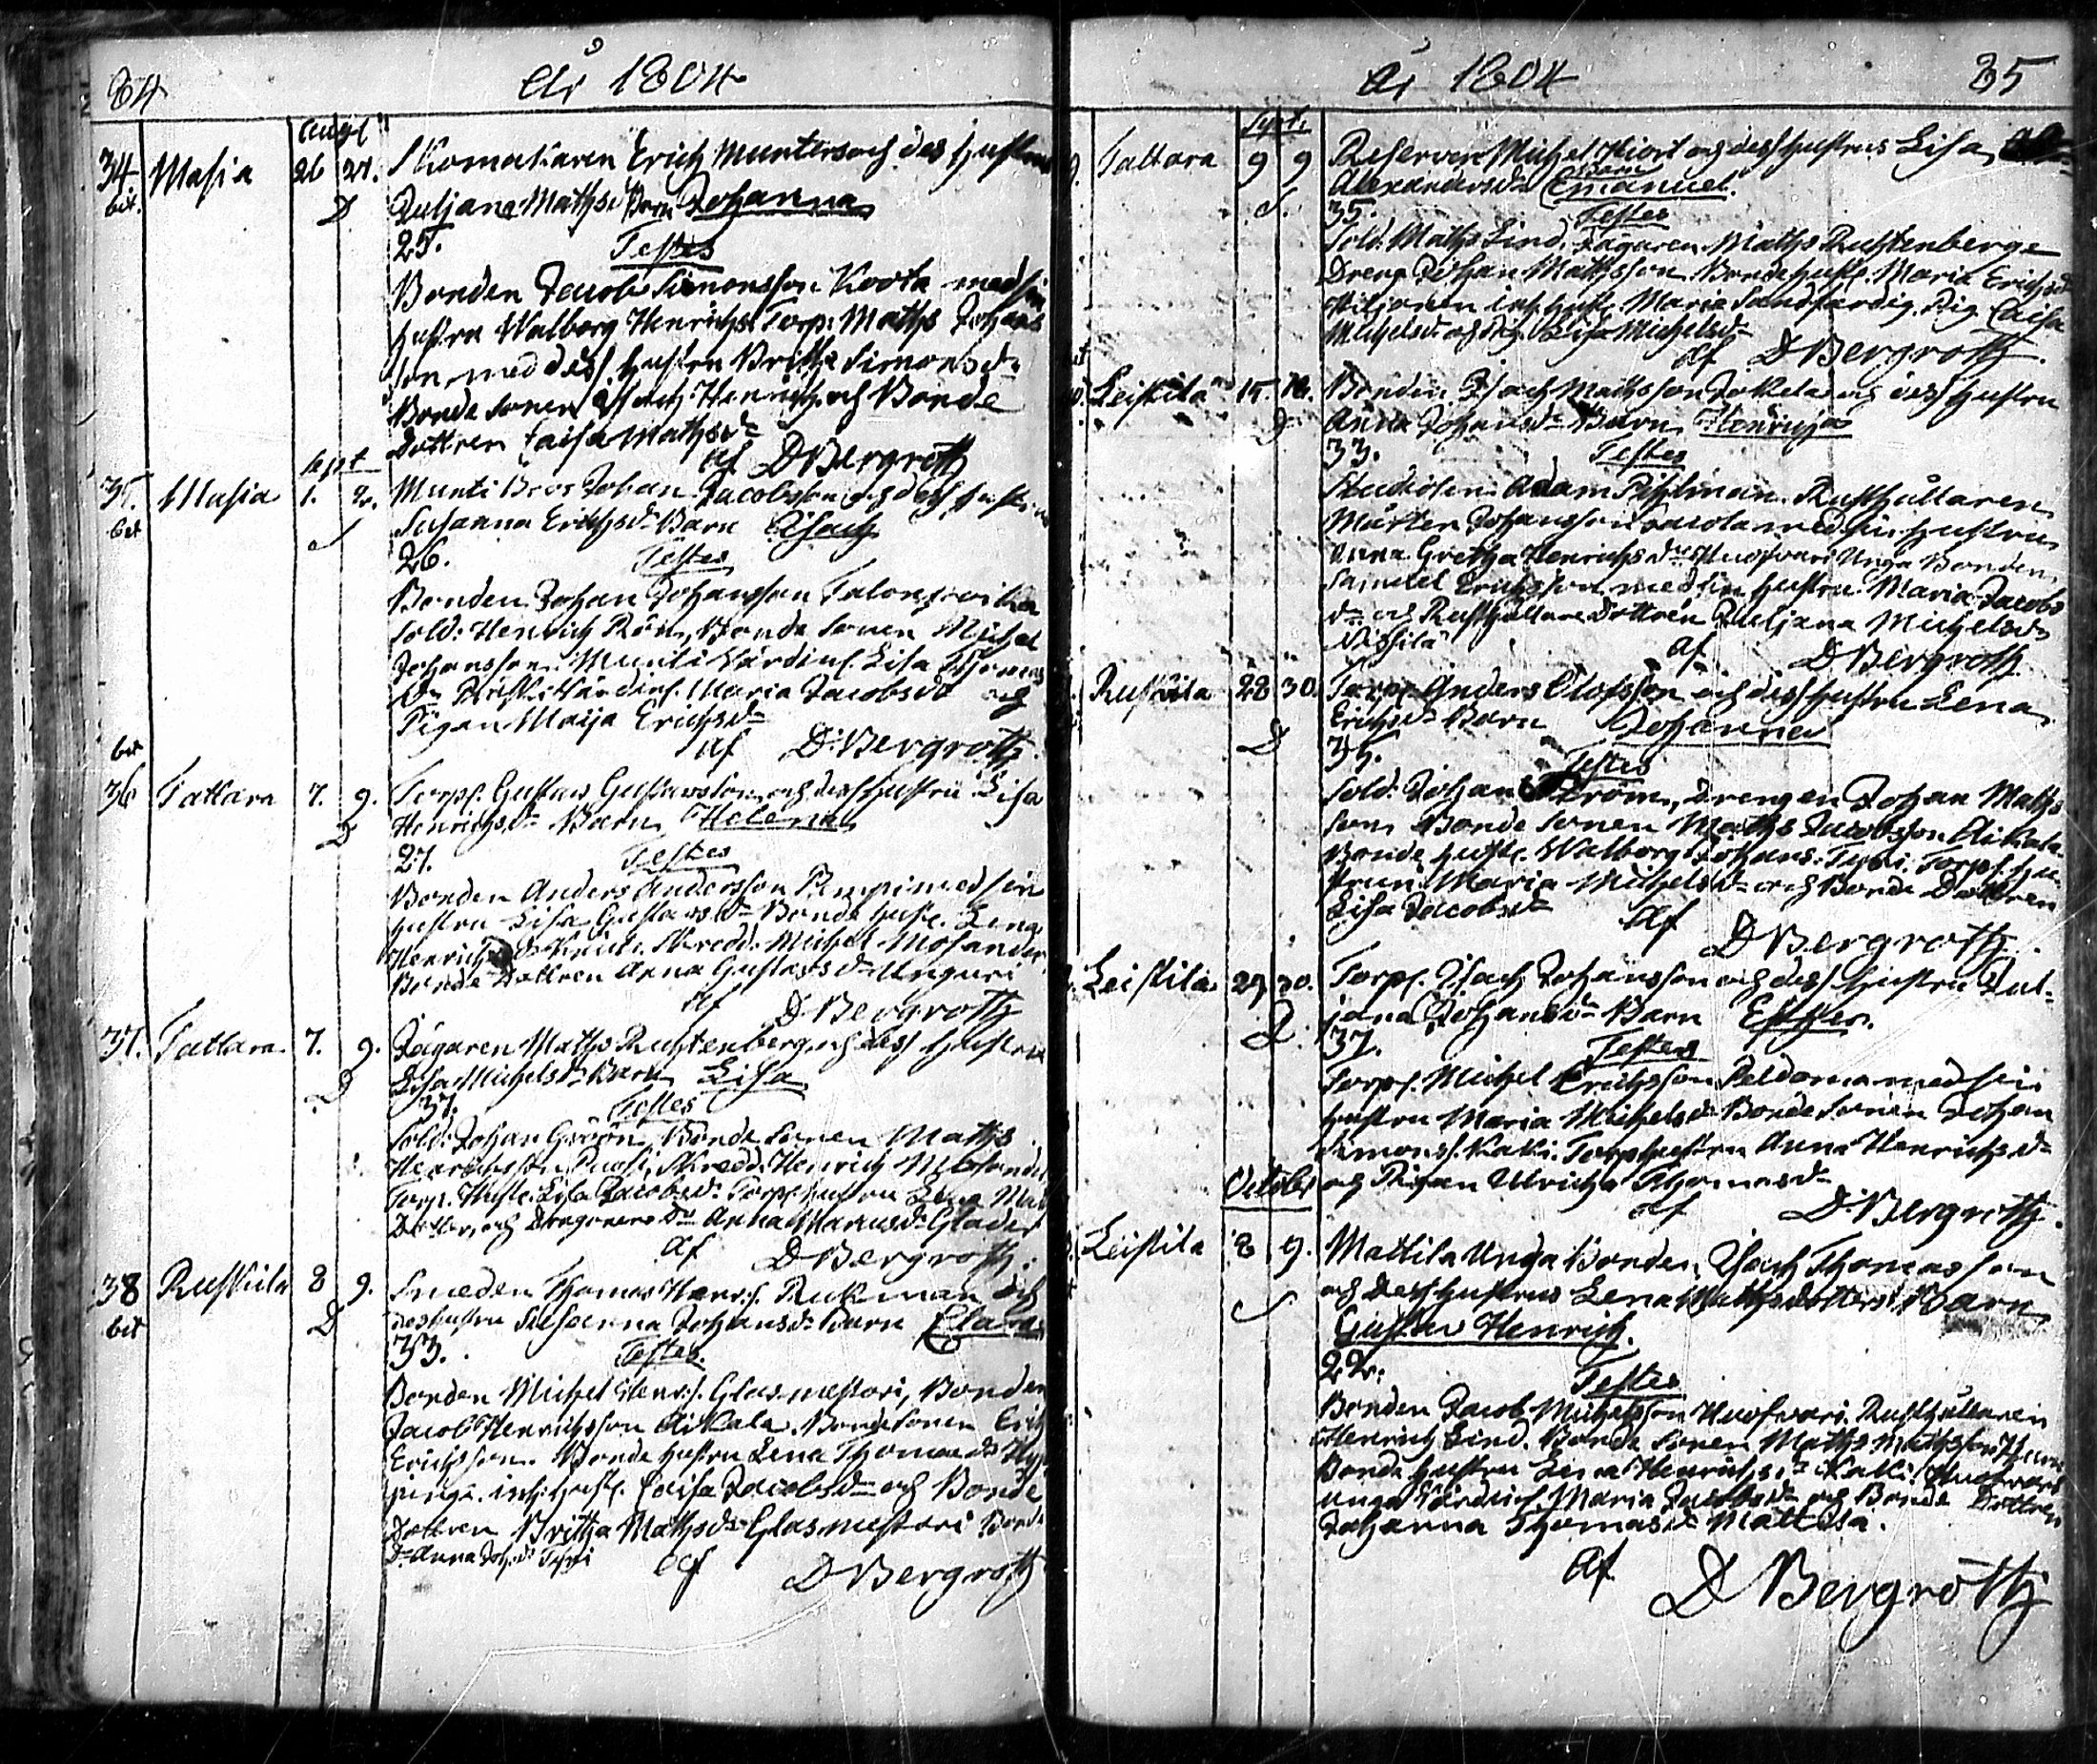 84
År 1804
Augt
34 Masia 26 27. Skomakaren Erich Munter och des hustru
bet. D Juljana Mathsd Barn Johanna
25. Testes
Bonden Jacob Simonsson Koota med sin
hustru Walborg Henrichs Torp. Maths Johans
son med dess hustru Britha Simonsdr
Bonde sonen Isach Henrich och Bonde
Dottren Caisa Mathsdr
af DBergroth
Sept
35. Masia 1. 2. Munti Bror Johan Jacobsson och dess hustru
bet Susanna Erichsdr Barn Isach
26. Testes
Bonden Johan Johansson
Sold: Henrich Rön, Bonde sonen Michel
Johansson. Munti Värdinf. Lisa Thomas
Dr Värdinf. Maria Jacobsdr och
Pigan Maija Erichsdr
af D:Bergroth
bet
36 Tattara 7. 9. Torpf. Gustav Gustavsson och dess hustru Lisa
D Henrichsdr Barn Helena
27. Testes
Bonden Anders Andersson Pimpi med sin
hustru Lisa Gustavsdr Bonde hust. Lena
Henrichsdr Skredd. Michel Mosander
Bonde Dottren Anna Gustavsdr Unguri
af DBergroth
37. Tattara 7. 9. Jägaren Maths Rustenberg och dess hustru
D Lisa Michelsdr Barn Lisa
37. Testes
Sold: Johan Gröön, Bonde sonen Maths
Henrichsson Skredd. Henrich
Torp. Hust. Lisa Jacobsdr Torpf hustru Lena
Dotter, och Dragonens Dr Anna Glader
af DBergroth.
38 Ruskila 8 9. Smeden Thomas Henr:s. Rukman och
bet D des hustru Susanna Johansdr Barn Clara
33. Testes.
Bonden Michel Henr:s. Glasmestari, Bonden
Jacob Henrichsson Aikala. Bondesonen Erich
Erichsson. Bonde hustru Lena Thomasdr
inh: hust. Caisa Jacobsdr och Bonde
Dottren Britha Mathsdr Glasmestari Bonde
Dr Anna Joh:dr
af DBergroth
År 1804
85
Septr
Tattara 9 9 Reserven Michel Hiort och dess hustru Lisa
Alexandersdr Barn Emanuel.
35. Testes
Sold: Maths Lind. Jägaren Maths Rustenberg
Dreng Johan Mathsson. Bonde hust. Maria Erichsdr
inh: hust. Maria Sandfärdig. Pig. Caisa
Michelsdr och Pig. Lisa Michelsdr
af DBergroth.
Leistila 15. 16. Bonden Isach Mathsson Jokela och dess hustru
D Anna Johansdr Barn Henrich
33. Testes
Studiosen Adam Pihlman. Rusthållaren
Mårten Johansson med sin hustru
Anna Gretha Henrichsdr Unga Bonden
Samuel Erichsson med sin hustru Maria Jacobs
dr och Rusthållare Dottren Juljana Michelsdr
af DBergroth
Ruskila 28 30. Torpf. Anders Olofsson och dess hustru Lena
D Erichsdr Barn Johannes
35. Testes
Sold: Johan Ström, Drengen Johan Maths
son, Bonde sonen Maths Jacobsson Aikala.
Bonde hust. Walborg Johans. Torpf. hu
strun Maria Michelsdr och Bonde Dottren
Lisa Jacobsdr af
DBergroth.
Leistila 29 30. Torpf. Isach Johansson och dess hustru Jul-
D. jana Johansdr Barn Esther.
37. Testes
Torpf. Michel Erichsson Peldoma med sin
hustru Maria Michelsdr Bondesonen Johan
Simons. Kaki. Torp hustru Anna Henrichsdr
och Pigan Ulricha Thomasdr
af D:Bergroth.
October
Leistila 8 9. Mattila Unga Bonden Isach Thomasson
och dess hustru Lena Mathsdotters Barn
Gustav Henrich.
22. Testes
Bonden Jacob Michelsson Rusthållaren
Henrich Lind. Bonde sonen Maths Mathsson
Bonde hustru Lena Henrichsdr Kaki.
unga Värdinf. Maria Jacobsdr och Bonde Dottren
Johanna Thomasdr Mattila.
af
DBergroth